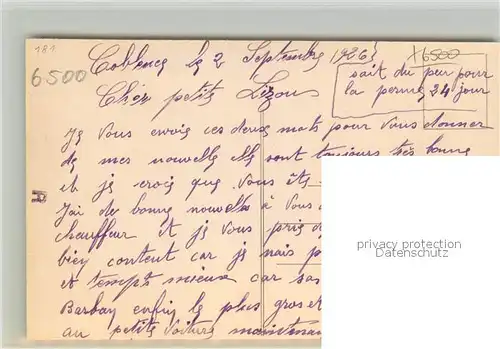 181
6500
Coblence le 2 Septembre 1926
6500
sait du peu pour
la perme 24 jour
Chér petits Lizou
Je Vous envois ces deux mots pour Vous donner
de mes nouvelle elle sont toujours très bonne
et je crois que Vous êts
J'ai de bonne nouvelle à Vous
chauffeur et je Vous prie d
bien content car je
et tempt mieux car sa
Barbay enfin le plus gros et
au petits voiture maintenan
privacy protection
Datenschutz